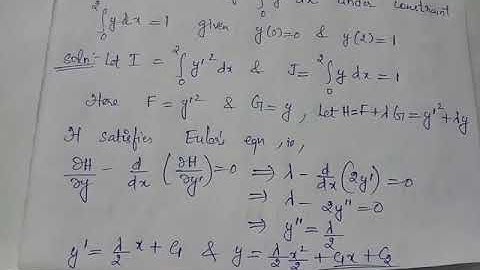 ∫₀² y dx = 1 given y(0)=0 & y(2)=1
Soln:- Let I = ∫₀² y'² dx & J = ∫₀² y dx = 1
Here F = y'² & G = y, Let H = F + λG = y'² + λy
H satisfies Euler's eqn, ie,
∂H/∂y - d/dx (∂H/∂y') = 0 ⟹ λ - d/dx (2y') = 0
⟹ λ - 2y'' = 0
⟹ y'' = λ/2
y' = λ/2 x + C₁ & y = λ/2 x²/2 + C₁x + C₂